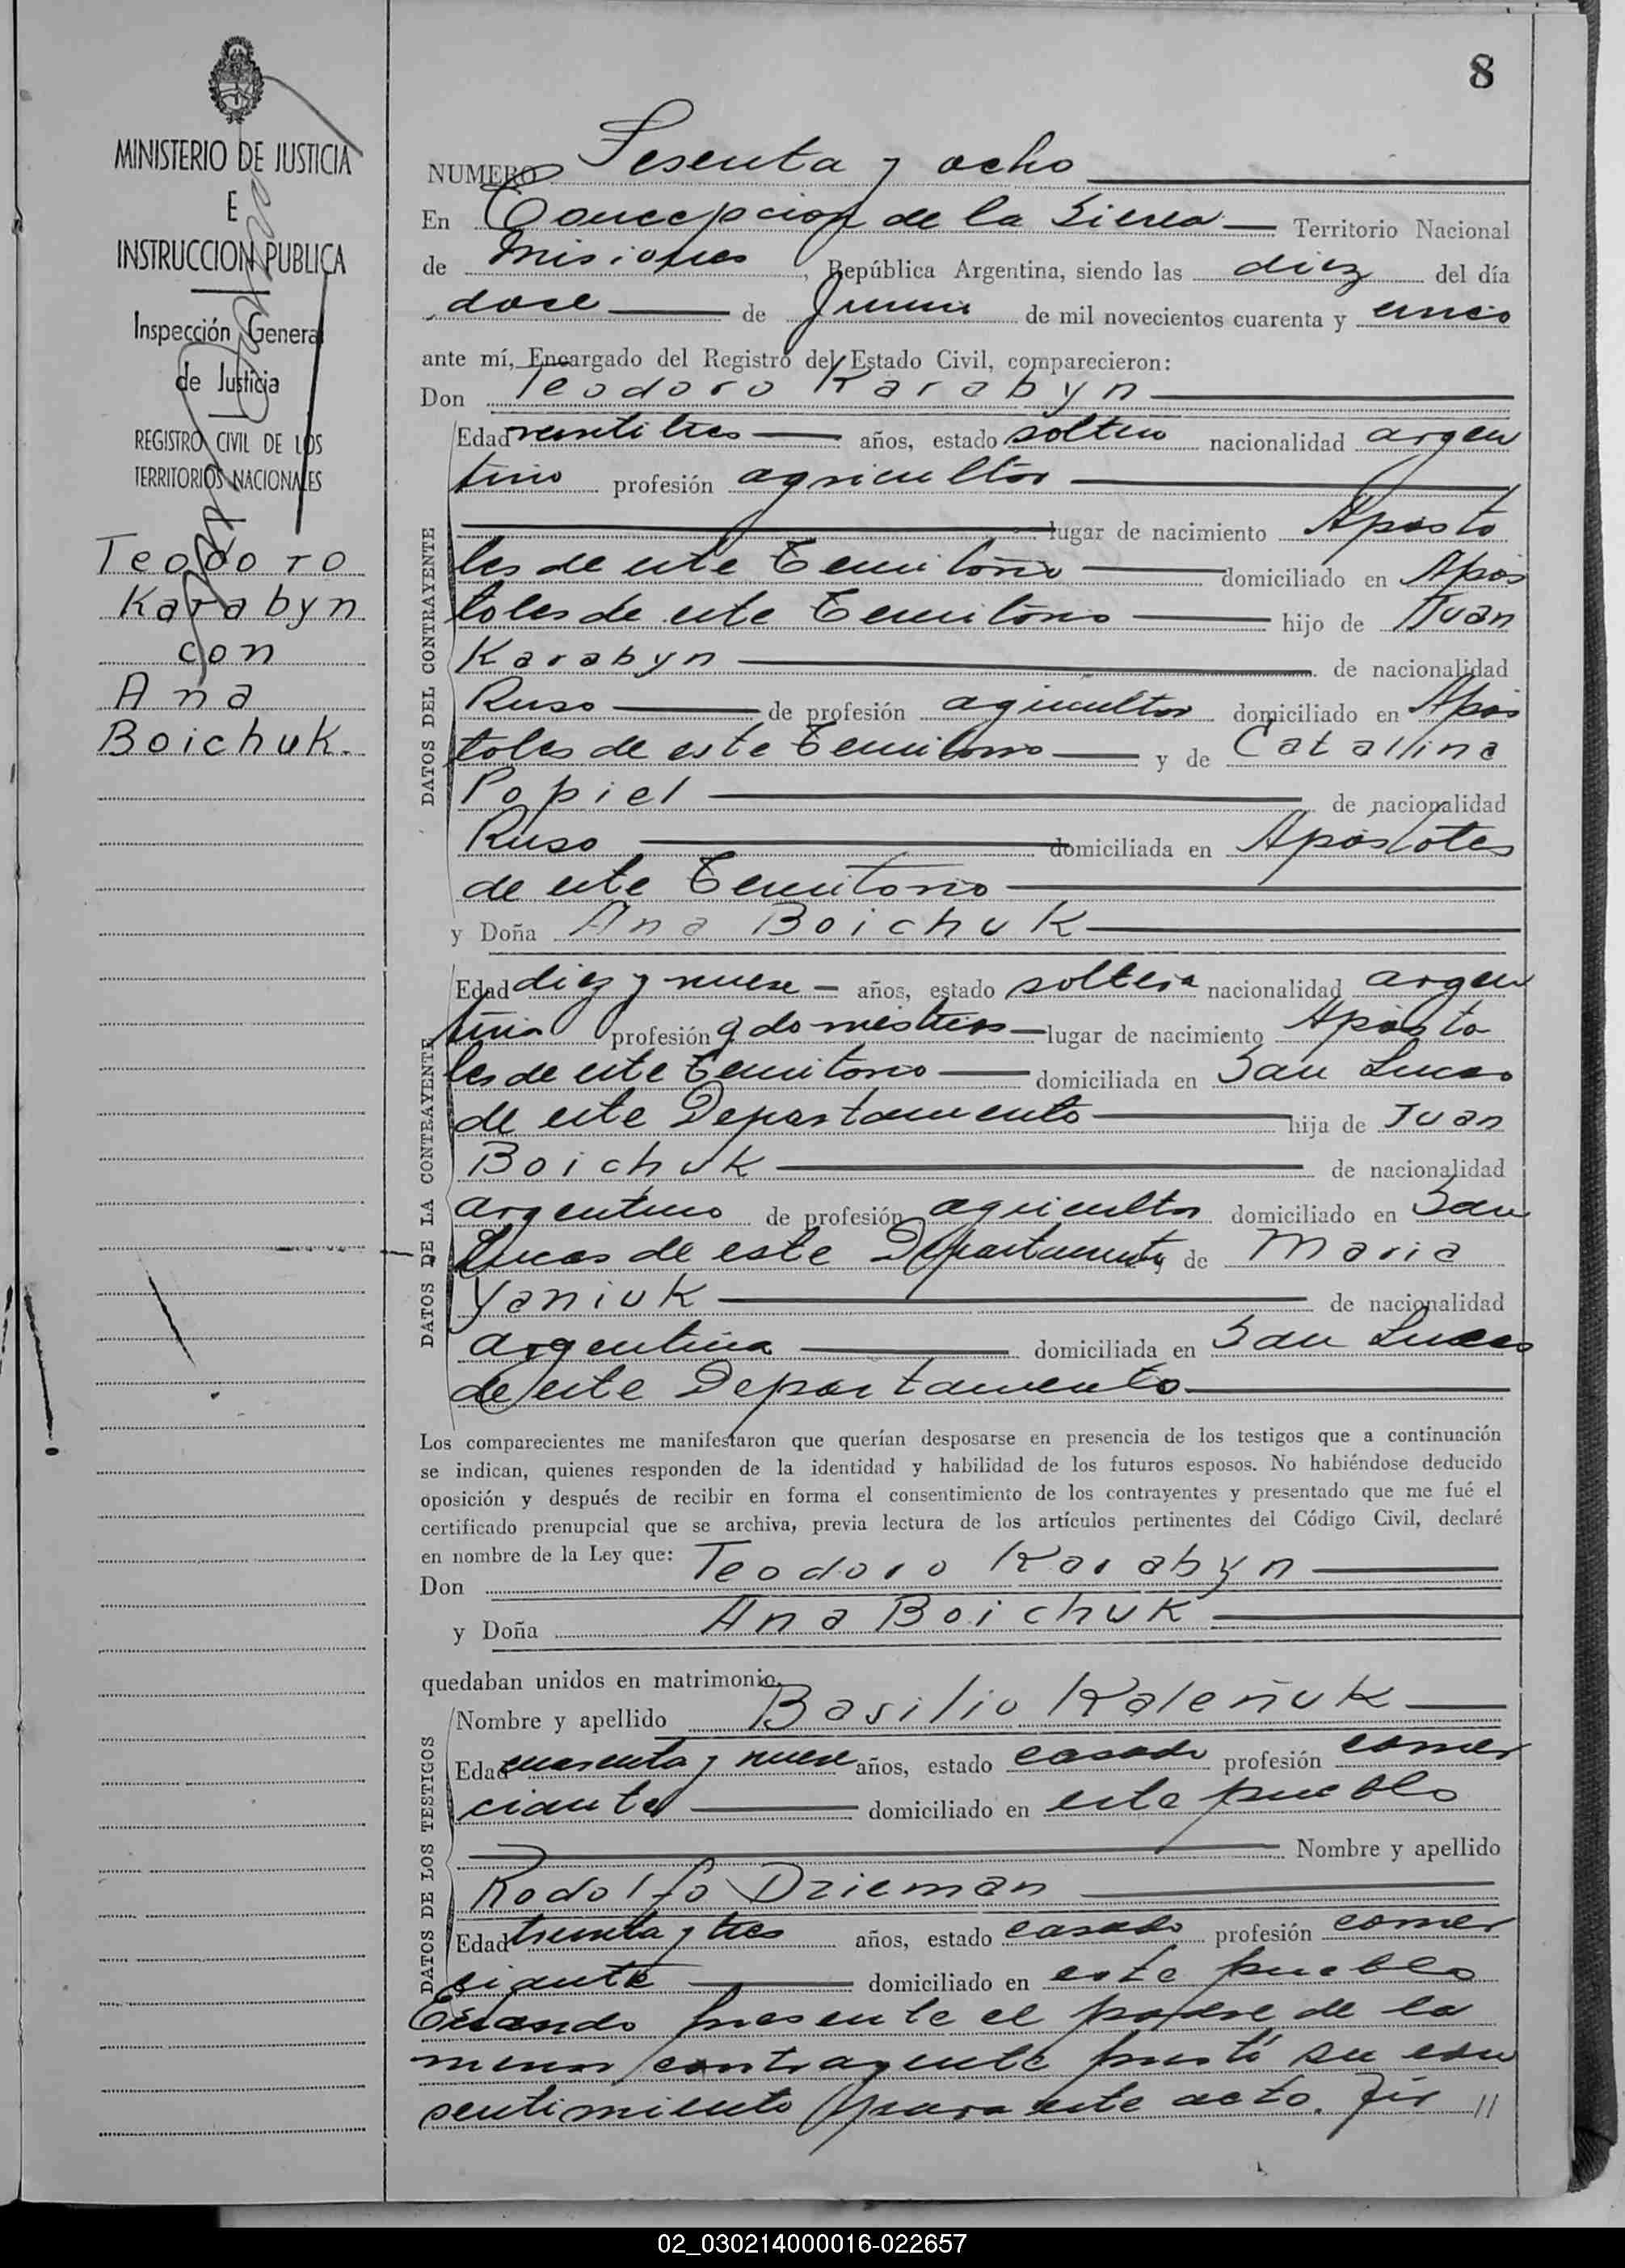 8
MINISTERIO DE JUSTICIA
E
INSTRUCCION PUBLICA
Inspección General
de Justicia
REGISTRO CIVIL DE LOS
TERRITORIOS NACIONALES
Teodoro
Karabyn
con
Ana
Boichuk.
NUMERO Sesenta y ocho
En Concepcion de la Sierra Territorio Nacional
de Misiones, República Argentina, siendo las diez del día
doce de Junio de mil novecientos cuarenta y cinco
ante mí, Encargado del Registro del Estado Civil, comparecieron:
Don Teodoro Karabyn
DATOS DEL CONTRAYENTE
Edad veintitres años, estado soltero nacionalidad argen
tino profesión agricultor
lugar de nacimiento Aposto
les de este Territorio domiciliado en Apos
toles de este Territorio hijo de Juan
Karabyn de nacionalidad
Ruso de profesión agricultor domiciliado en Apos
toles de este Territorio y de Catalina
Popiel de nacionalidad
Ruso domiciliada en Apostoles
de este Territorio
y Doña Ana Boichuk
DATOS DE LA CONTRAYENTE
Edad diez y nueve años, estado soltera nacionalidad argen
tina profesión q domesticos lugar de nacimiento Aposto
les de este Territorio domiciliada en San Lucas
de este Departamento hija de Juan
Boichuk de nacionalidad
argentino de profesión agricultor domiciliado en San
Lucas de este Departamento y de Maria
Yaniuk de nacionalidad
argentina domiciliada en San Lucas
de este Departamento
Los comparecientes me manifestaron que querían desposarse en presencia de los testigos que a continuación
se indican, quienes responden de la identidad y habilidad de los futuros esposos. No habiéndose deducido
oposición y después de recibir en forma el consentimiento de los contrayentes y presentado que me fué el
certificado prenupcial que se archiva, previa lectura de los artículos pertinentes del Código Civil, declaré
en nombre de la Ley que:
Don Teodoro Karabyn
y Doña Ana Boichuk
quedaban unidos en matrimonio.
DATOS DE LOS TESTIGOS
Nombre y apellido Basilio Kaleñuk
Edad cuarenta y nueve años, estado casado profesión comer
ciante domiciliado en este pueblo
Nombre y apellido
Rodolfo Dzieman
Edad treinta y tres años, estado casado profesión comer
ciante domiciliado en este pueblo
Estando presente el padre de la
menor contrayente prestó su con
sentimiento para este acto. Fir //
02_030214000016-022657